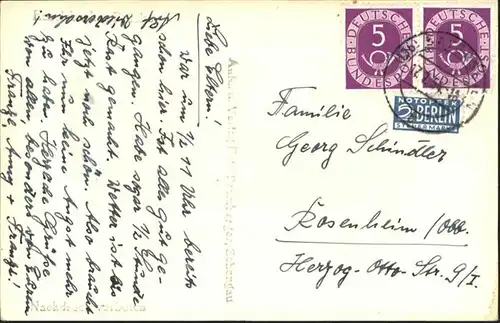 Auf Wiedersehn!
Liebe Eltern!
War um 1/2 11 Uhr bereits
schon hier. Ist alles gut ge-
gangen. Habe sogar 1/2 Stunde
Rast gemacht. Wetter ist bis
jetzt sehr schön. Also braucht
Ihr um keine Angst mehr
zu haben. Herzliche Grüße
von allen besonders von Euren
Franzl, Anny + Franzi!
Nachdruck verboten
DEUTSCHE
BUNDESPOST
5
DEUTSCHE
BUNDESPOST
5
NOTOPFER
2 BERLIN
STEUERMARKE
Familie
Georg Schindler
Rosenheim/Obb.
Herzog-Otto-Str. 9/I.